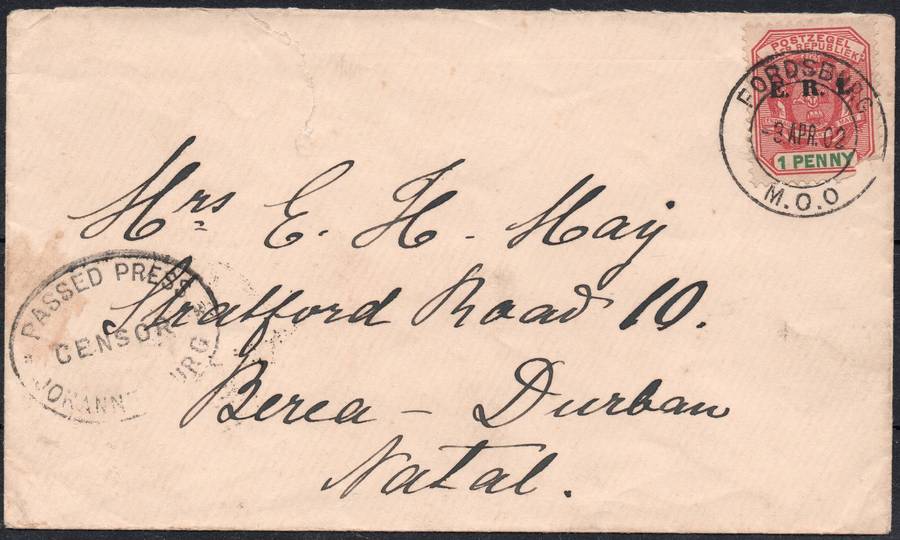 POSTZEGEL
REPUBLIEK
E. R. I.
1 PENNY
FORDSBURG
8 APR. 02
M.O.O
Mrs E. H. May
Stratford Road 10.
Berea – Durban
Natal.
PASSED PRESS
CENSOR
JOHANN URG